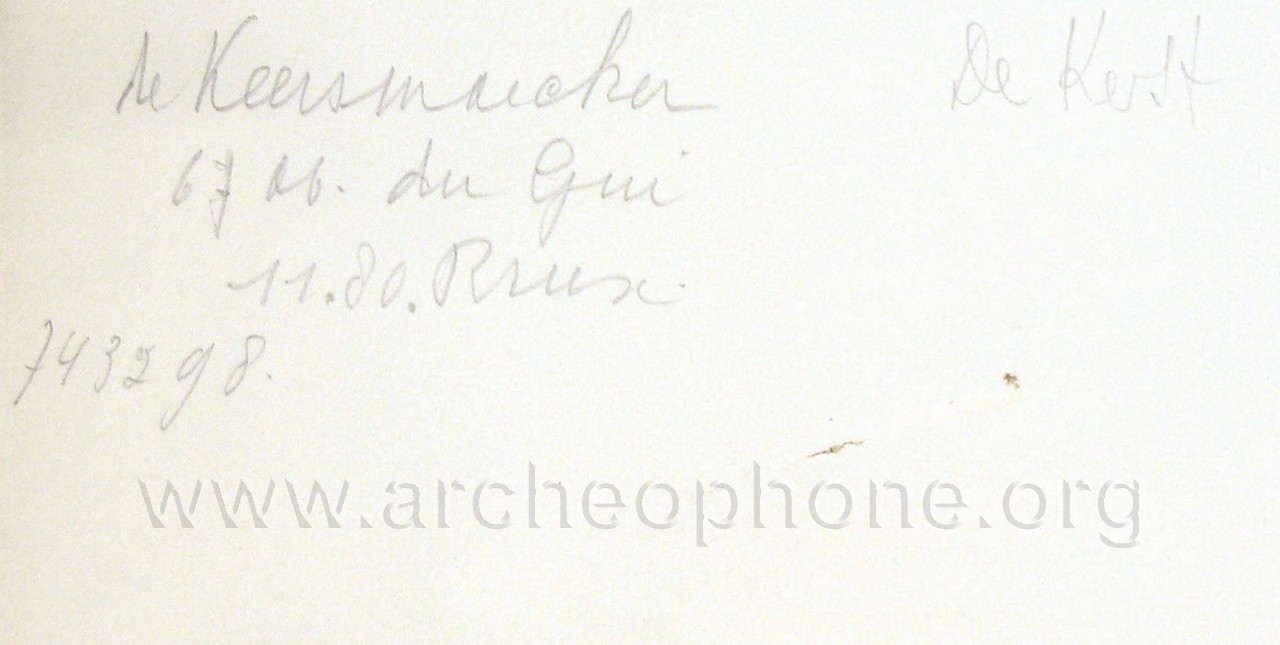 de Keersmaecker
De Kerst
67 Ab. du Gui
11.80. Brux.
743298.
www.archeophone.org